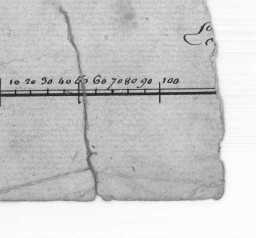 10 20 30 40 50 60 70 80 90 100